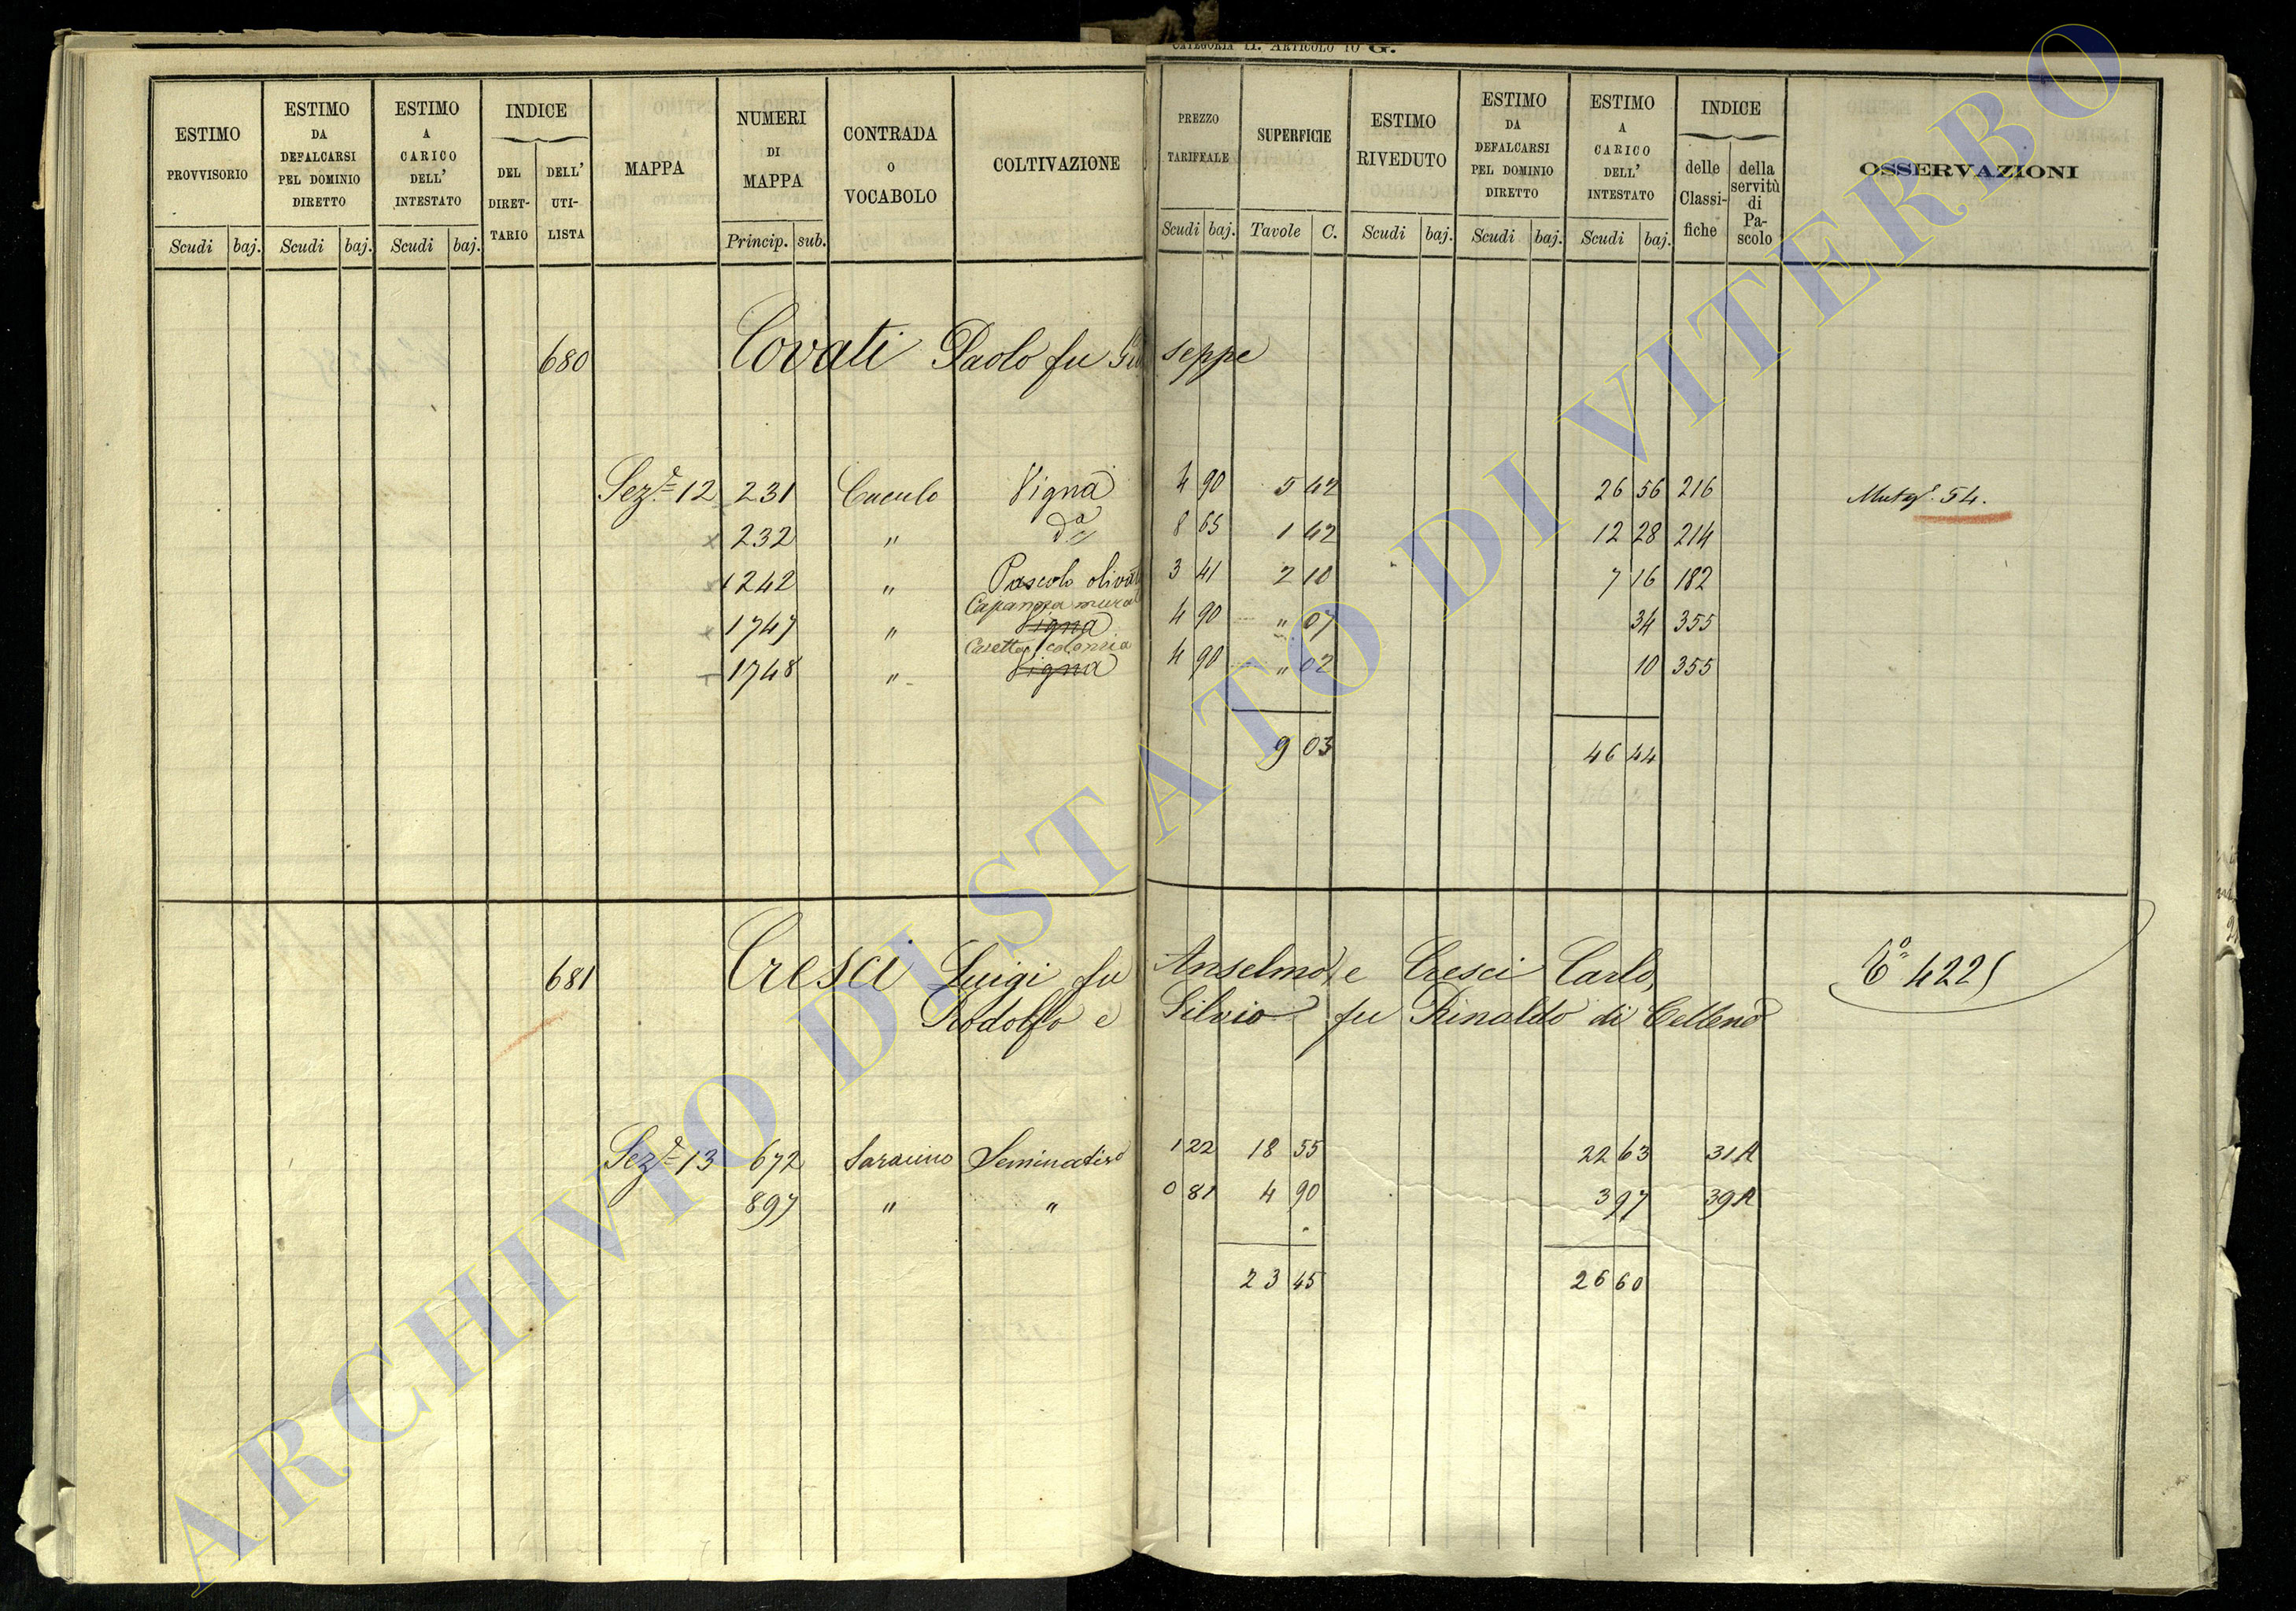 CATEGORIA II. ARTICOLO 10 G.
ESTIMO PROVVISORIO Scudi baj.
ESTIMO DA DEFALCARSI PEL DOMINIO DIRETTO Scudi baj.
ESTIMO A CARICO DELL' INTESTATO Scudi baj.
INDICE DEL DIRET- TARIO DELL' UTI- LISTA
MAPPA
NUMERI DI MAPPA Princip. sub.
CONTRADA O VOCABOLO
COLTIVAZIONE
PREZZO TARIFFALE Scudi baj.
SUPERFICIE Tavole C.
ESTIMO RIVEDUTO Scudi baj.
ESTIMO DA DEFALCARSI PEL DOMINIO DIRETTO Scudi baj.
ESTIMO A CARICO DELL' INTESTATO Scudi baj.
INDICE delle Classi- fiche della servitù di Pa- scolo
OSSERVAZIONI
680 Covati Paolo fu Giu seppe
Sez.e 12 231 Cuculo Vigna 4 90 5 42 26 56 216 54.
232 " da 8 65 1 42 12 28 214
1242 " Pascolo olivato 3 41 2 10 7 16 182
Capanna murata
1747 " Vigna 4 90 " 07 34 355
Casetta colonica
1748 " Vigna 4 90 " 02 10 355
9 03 46 44
681 Cresci Luigi fu Anselmo, e Cresci Carlo, 4225
Rodolfo e Silvio fu Rinaldo di Celleno
Sez.e 13 672 Saracino Seminativo 1 22 18 55 22 63 31A
897 " " 0 81 4 90 3 97 39A
23 45 26 60
ARCHIVIO DI STATO DI VITERBO